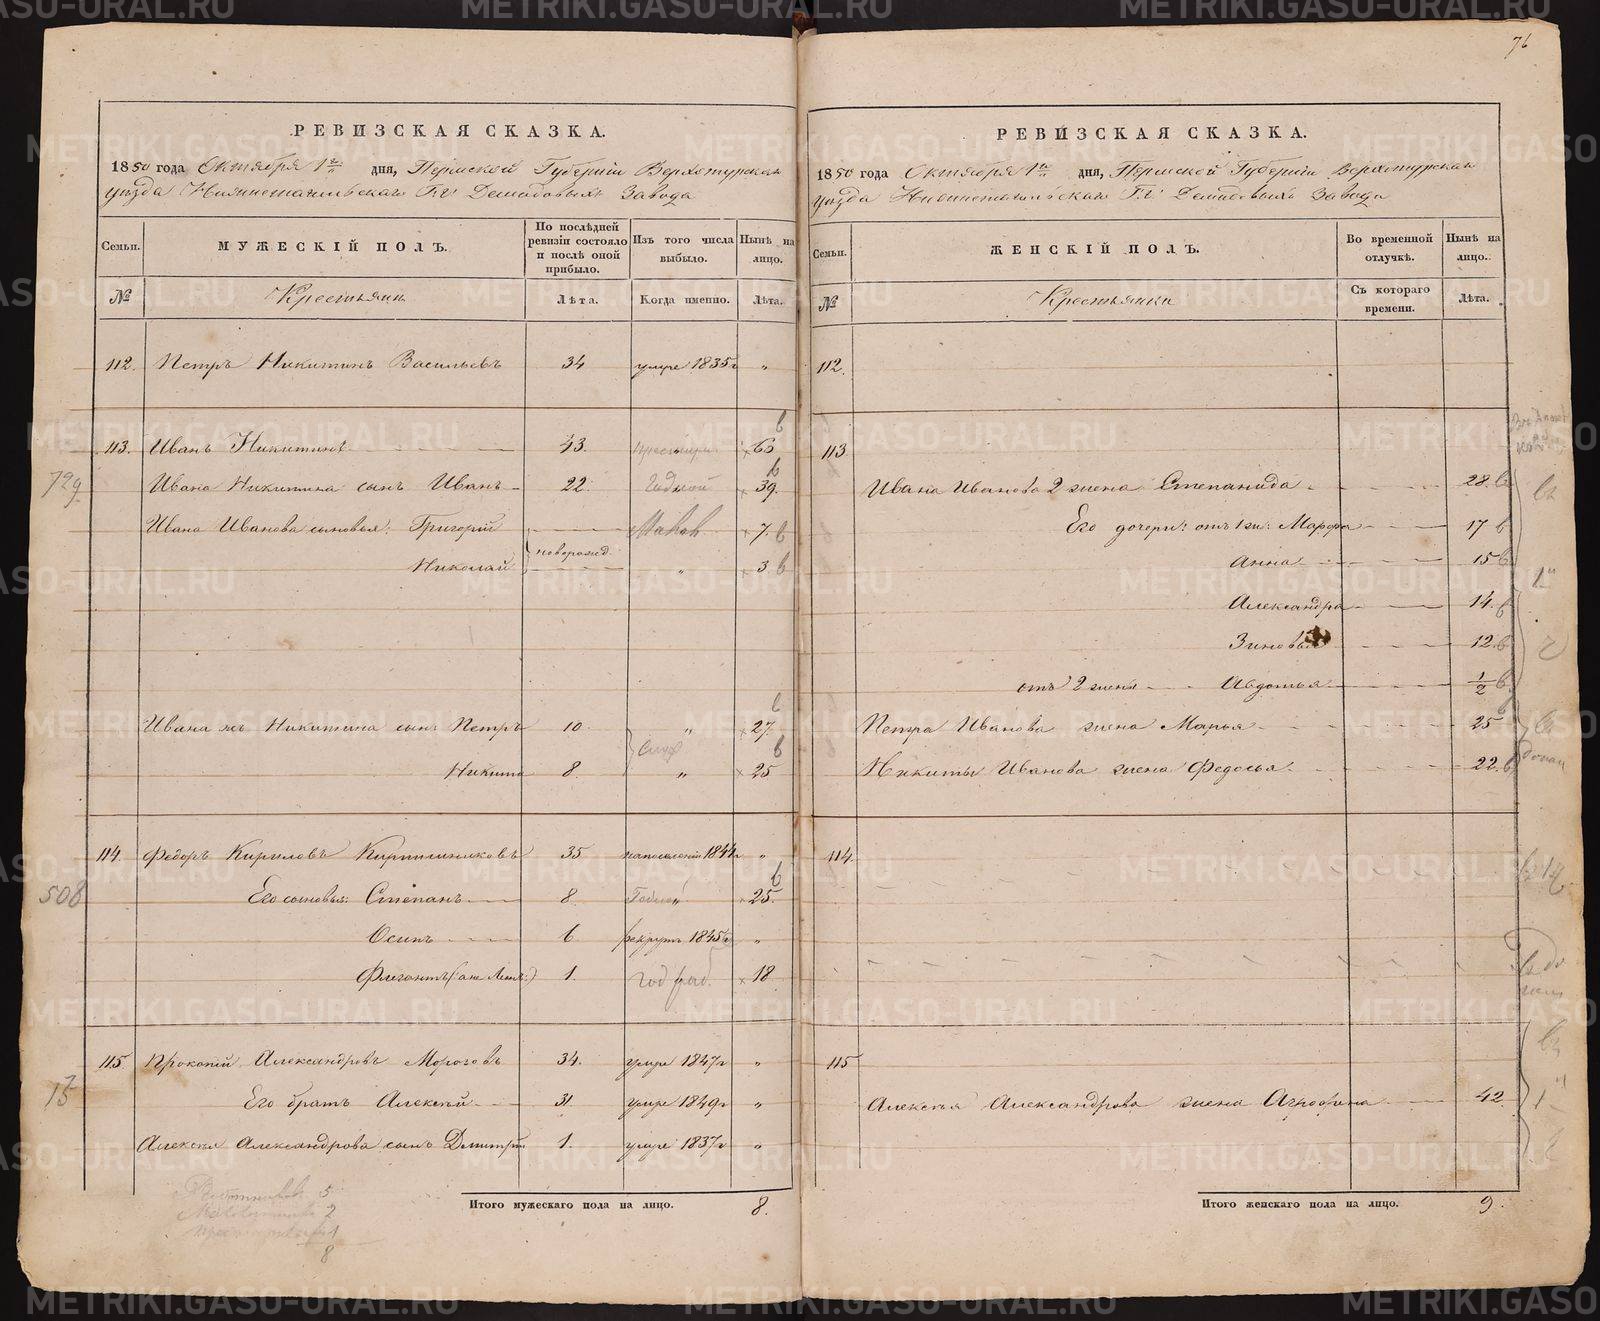 76
РЕВИЗСКАЯ СКАЗКА.
1850 года Октября 1го дня, Пермской Губернии Верхотурскаго
уезда Нижнетагильскаго Гг. Демидовыхъ Завода
Семьи. МУЖЕСКІЙ ПОЛЪ. По послѣдней ревизіи состояло и послѣ оной прибыло. Изъ того числа выбыло. Нынѣ на лицо.
№ Крестьяне Лѣта. Когда именно. Лѣта.
112. Петръ Никитинъ Васильевъ 34 умре 1835г "
113. Иванъ Никитинъ 43. 60
729 Ивана Никитина сынъ Иванъ 22. Годной 39.
Ивана Иванова сыновья: Григорій 7.
Николай новорожд. " 3
Ивана жъ Никитина сын: Петръ 10. " 27
Никита 8. " 25
114. Федоръ Кириловъ Кирпишниковъ 35 1844г "
508 Его сыновья: Степанъ 8. 25.
Осипъ 6 рекрутъ 1845г "
1. год раб. 18
115. Прокопій Александровъ Морозовъ 34. умре 1847г "
Его братъ Алексѣй 31 умре 1849г "
Алексѣя Александрова сынъ Дмитрій 1. умре 1837г "
Итого мужескаго пола на лицо. 8.
5
2
1
8
РЕВИЗСКАЯ СКАЗКА.
1850 года Октября 1го дня, Пермской Губерніи Верхотурскаго
уезда Нижнетагильскаго Гг. Демидовыхъ Завода
Семьи. ЖЕНСКІЙ ПОЛЪ. Во временной отлучкѣ. Нынѣ на лицо.
№ Крестьянки Съ котораго времени. Лѣта.
112.
113
Ивана Иванова 2 жена Степанида 28.
Его дочери: отъ 1 ж: Марфа 17
Анна 15
Александра 14.
Зиновья 12.
отъ 2 жены Авдотья 1/2
Петра Иванова жена Марья 25
Никиты Иванова жена Федосья 22.
114.
115
Алексѣя Александрова жена Агрофена 42.
Итого женскаго пола на лицо. 9.
METRIKI.GASO-URAL.RU